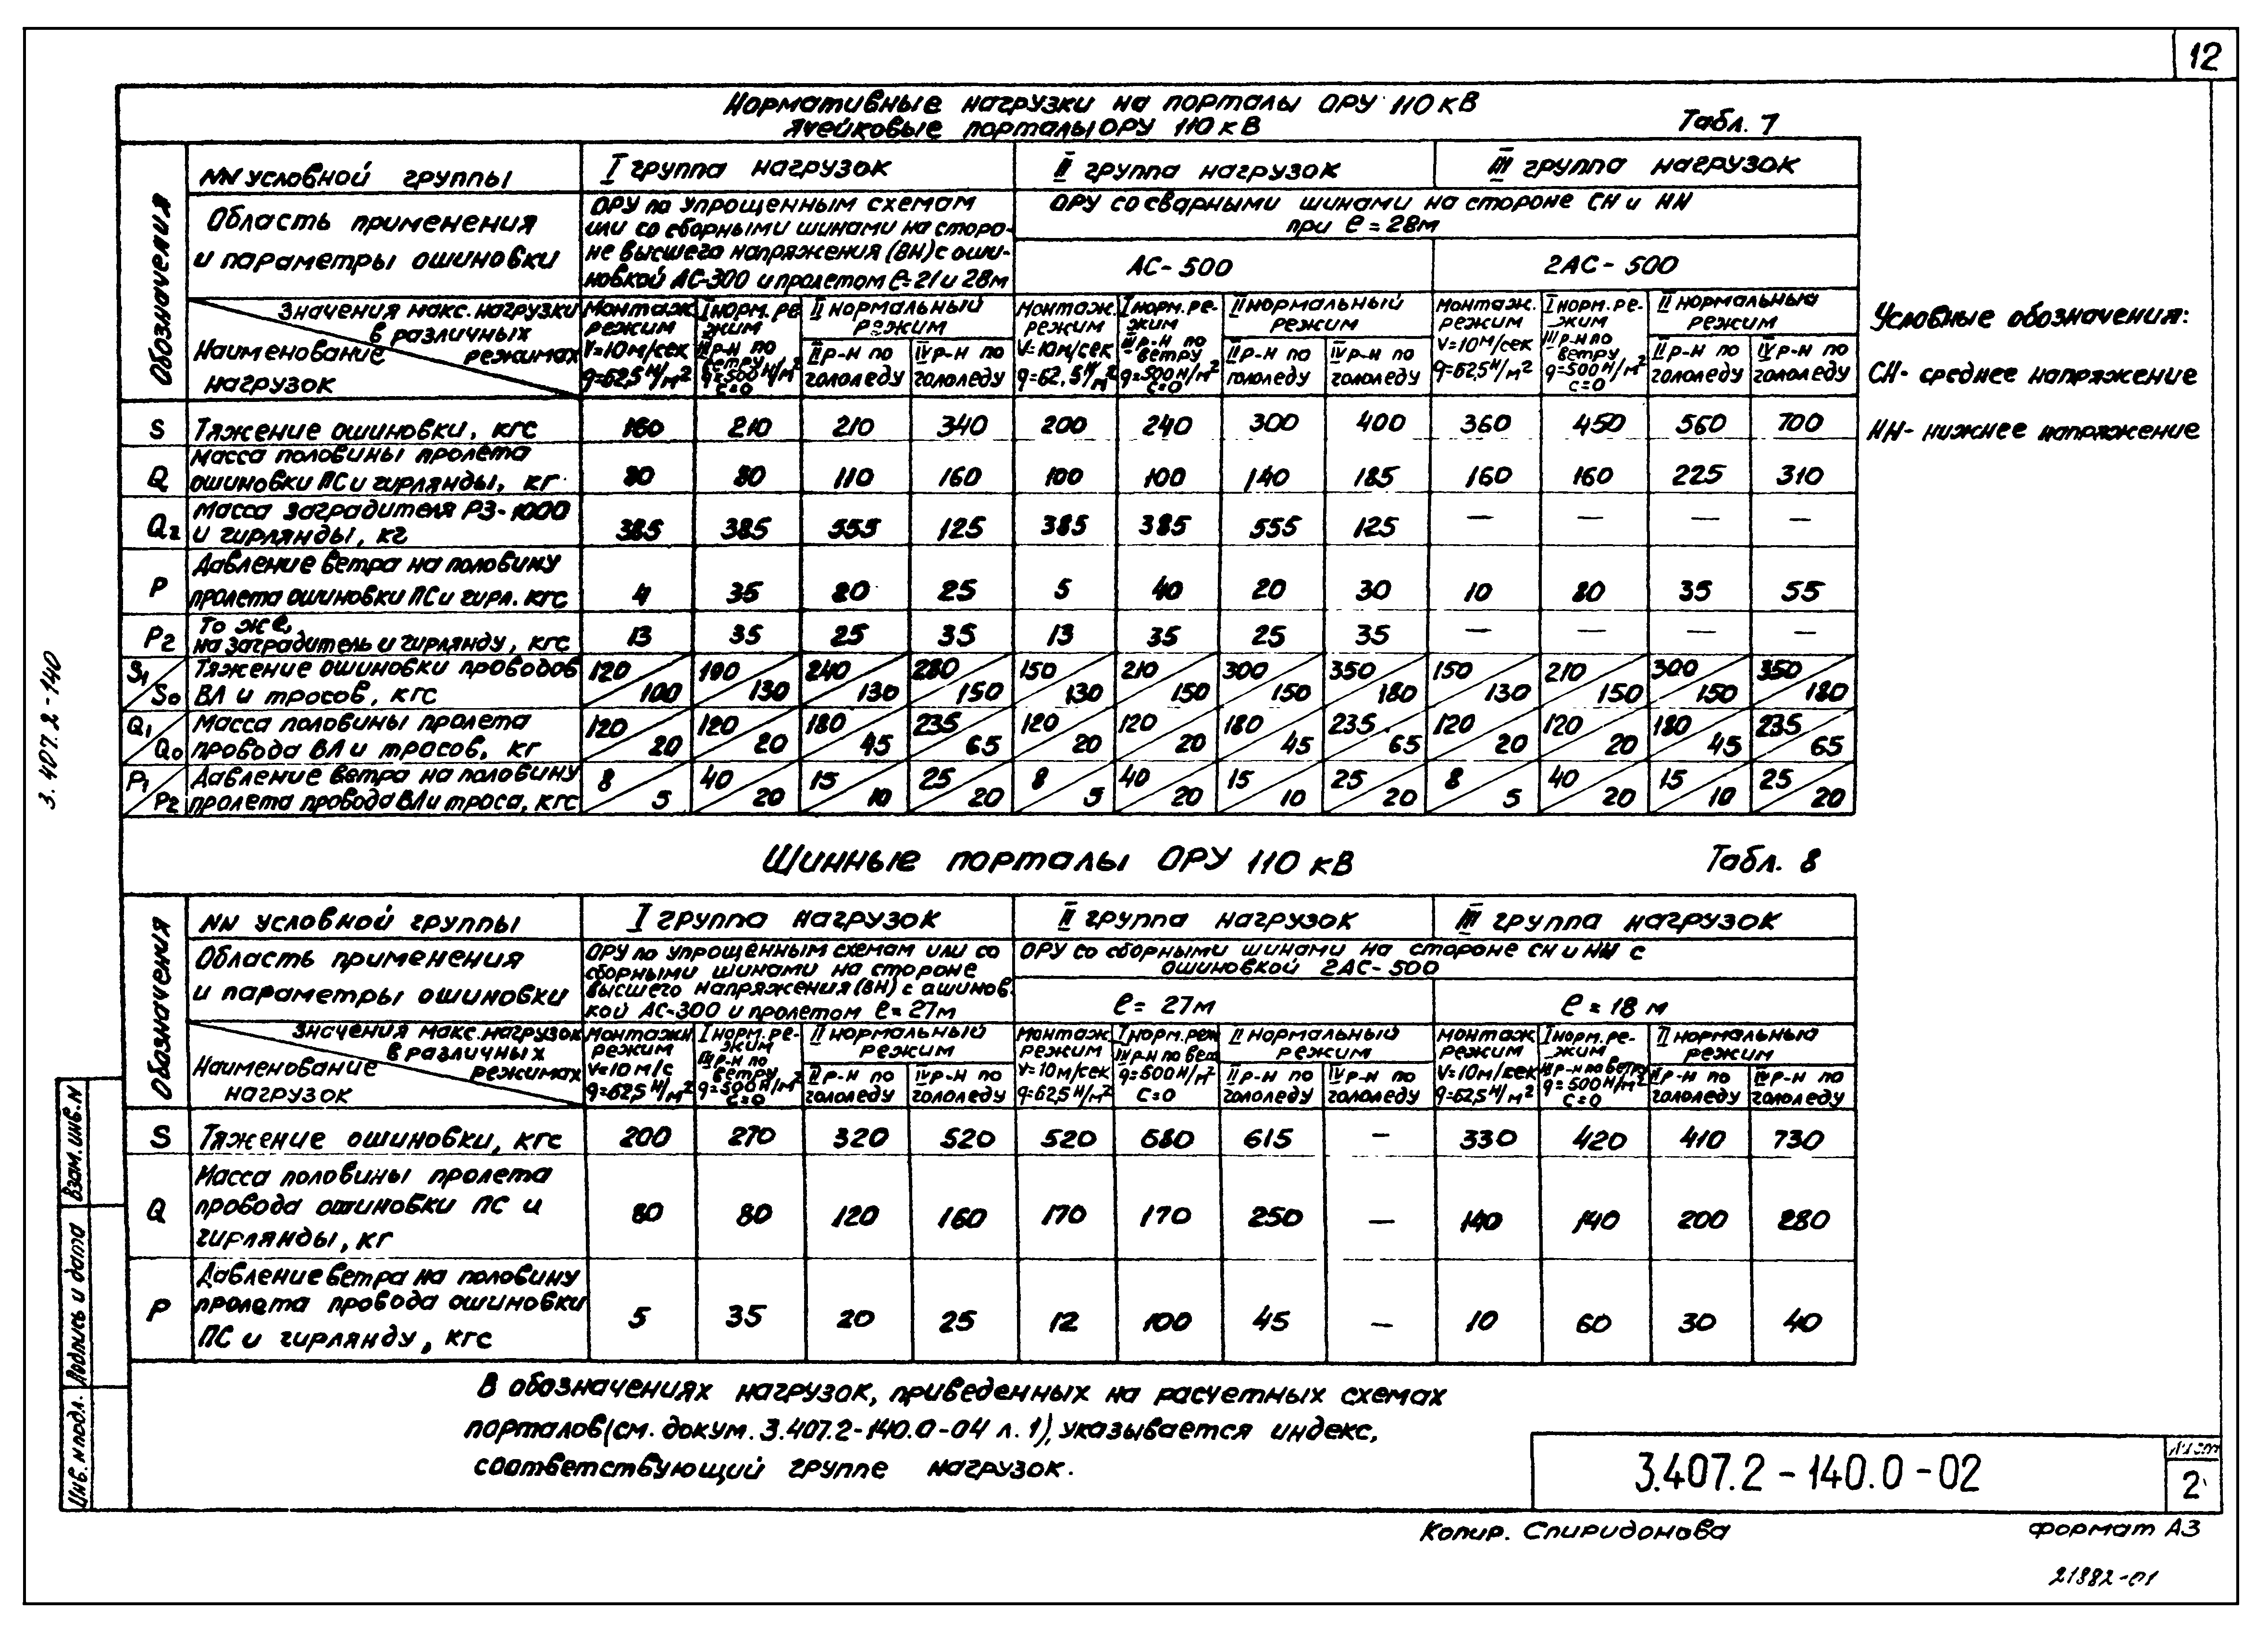 12
Нормативные нагрузки на порталы ОРУ 110 кВ
Ячейковые порталы ОРУ 110 кВ
Табл. 7
Обозначения
NN условной группы
I группа нагрузок
II группа нагрузок
III группа нагрузок
Область применения
и параметры ошиновки
ОРУ по упрощенным схемам
или со сборными шинами на сторо-
не высшего напряжения (ВН) с оши-
новкой АС-300 и пролетом ℓ=21 и 28м
ОРУ со сварными шинами на стороне СН и НН
при ℓ = 28м
АС-500
2АС-500
Значения макс. нагрузки
в различных
режимах
Наименование
нагрузок
Монтаж.
режим
V=10м/сек
q=62,5 Н/м²
I норм. ре-
жим
III р-н по
ветру
q=500 Н/м²
С=0
II нормальный
режим
II р-н по
гололеду
IV р-н по
гололеду
Монтаж.
режим
V=10м/сек
q=62,5 Н/м²
I норм. ре-
жим
III р-н по
ветру
q=500 Н/м²
С=0
II нормальный
режим
II р-н по
гололеду
IV р-н по
гололеду
Монтаж.
режим
V=10м/сек
q=62,5 Н/м²
I норм. ре-
жим
III р-н по
ветру
q=500 Н/м²
С=0
II нормальный
режим
II р-н по
гололеду
IV р-н по
гололеду
S Тяжение ошиновки, кгс 160 210 210 340 200 240 300 400 360 450 560 700
Масса половины пролета
Q ошиновки ПС и гирлянды, кг 80 80 110 160 100 100 140 185 160 160 225 310
Масса заградителя РЗ-1000
Q2 и гирлянды, кг 385 385 555 125 385 385 555 125 — — — —
Давление ветра на половину
P пролета ошиновки ПС и гирл. кгс 4 35 20 25 5 40 20 30 10 80 35 55
То же,
P2 на заградитель и гирлянду, кгс 13 35 25 35 13 35 25 35 — — — —
S1 Тяжение ошиновки проводов 120 190 240 280 150 210 300 350 150 210 300 350
S0 ВЛ и тросов, кгс 100 130 130 150 130 150 150 180 130 150 150 180
Q1 Масса половины пролета 120 120 180 235 120 120 180 235 120 120 180 235
Q0 провода ВЛ и трасов, кг 20 20 45 65 20 20 45 65 20 20 45 65
P1 Давление ветра на половину 8 40 15 25 8 40 15 25 8 40 15 25
P2 пролета провода ВЛ и троса, кгс 5 20 10 20 5 20 10 20 5 20 10 20
Условные обозначения:
СН- среднее напряжение
НН- нижнее напряжение
Шинные порталы ОРУ 110 кВ
Табл. 8
Обозначения
NN условной группы
I группа нагрузок
II группа нагрузок
III группа нагрузок
Область применения
и параметры ошиновки
ОРУ по упрощенным схемам или со
сборными шинами на стороне
высшего напряжения (ВН) с ошинов-
кой АС-300 и пролетом ℓ=27м
ОРУ со сборными шинами на стороне СН и НН с
ошиновкой 2АС-500
ℓ= 27м
ℓ = 18 м
Значения макс. нагрузок
в различных
режимах
Наименование
нагрузок
Монтажн.
режим
V=10м/с
q=62,5 Н/м²
I норм. ре-
жим
III р-н по
ветру
q=500 Н/м²
С=0
II нормальный
режим
II р-н по
гололеду
IV р-н по
гололеду
Монтаж.
режим
V=10м/сек
q=62,5 Н/м²
I норм. реж
IV р-н по вет
q=600 Н/м²
С=0
II нормальный
режим
II р-н по
гололеду
IV р-н по
гололеду
Монтаж
режим
V=10м/сек
q=62,5 Н/м²
I норм. ре-
жим
III р-н по ветру
q=500 Н/м²
С=0
II нормальный
режим
II р-н по
гололеду
IV р-н по
гололеду
S Тяжение ошиновки, кгс 200 270 320 520 520 680 615 — 330 420 410 730
Масса половины пролета
Q провода ошиновки ПС и 80 80 120 160 170 170 250 — 140 140 200 280
гирлянды, кг
Давление ветра на половину
P пролета провода ошиновки 5 35 20 25 12 100 45 — 10 60 30 40
ПС и гирлянду, кгс
В обозначениях нагрузок, приведенных на расчетных схемах
порталов (см. докум. 3.407.2-140.0-04 л. 1), указывается индекс,
соответствующий группе нагрузок.
3. 407.2-140
Взам. инв. N
Подпись и дата
Инв. N подл.
3.407.2-140.0-02
Лист
2
Копир. Спиридонова
формат А3
21882-01